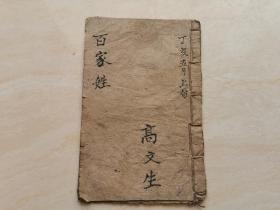 丁亥五月上旬
百家姓
高文生